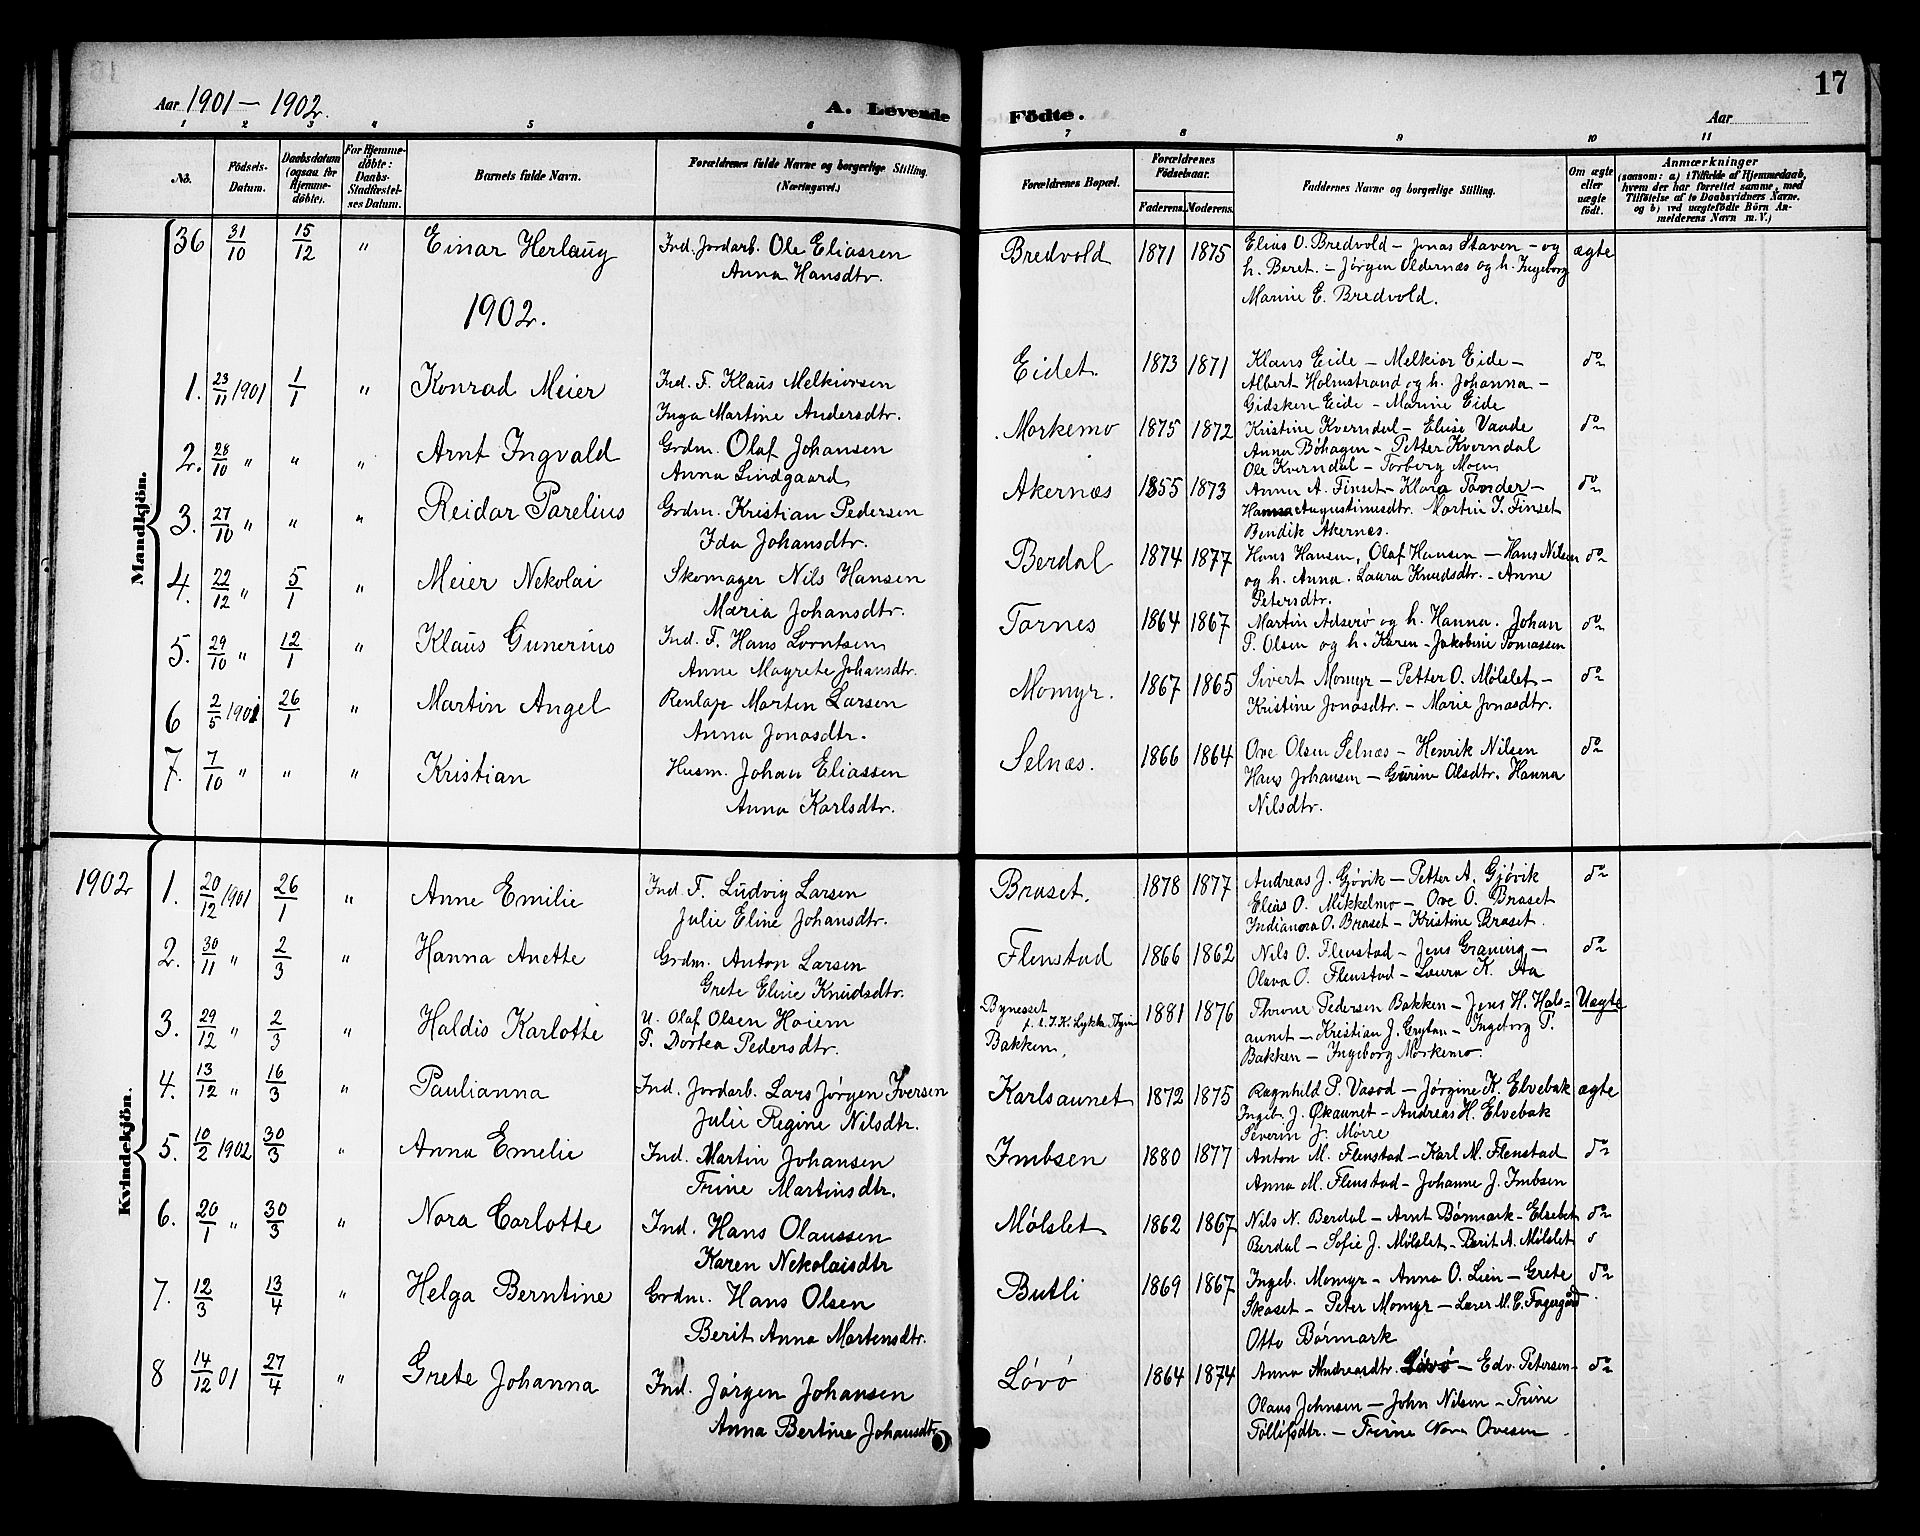 Aar 1901 – 1902.
A. Levende
Födte.
Aar
17
1 2 3 4 5 6 7 8 9 10 11
No.
Födsels-Datum.
Daabsdatum (ogsaa for Hjemme-döbte).
For Hjemme-döbte: Daabs-Stadfæstel-ses Datum.
Barnets fulde Navn.
Forældrenes fulde Navne og borgerlige Stilling. (Næringsvei.)
Forældrenes Bopæl.
Forældrenes Födselsaar.
Faderens. Moderens.
Faddernes Navne og borgerlige Stilling.
Om ægte eller uægte født.
Anmærkninger
(saasom: a) i Tilfælde af Hjemmedaab, hvem der har forrettet samme, med Tilföielse af to Daabsvidners Navne. og b) ved uægtefödte Börn An-melderens Navn m. V.)
Mandkjön.
36 31/10 15/12 " Einar Herlaug Ind. Jordarb. Ole Eliassen Bredvold 1871 1875 Elius O. Bredvold – Jonas Staven – og ægte
Anna Hansdtr. h. Beret. – Jørgen Oldernæs og h. Ingeborg
Marine E. Bredvold.
1902.
1. 23/11 1901 1/1 " Konrad Meier Ind. F. Klaus Melkiorsen Eidet. 1873 1871 Klaus Eide – Melkior Eide – do
Inga Martine Andersdtr. Albert Holmstrand og h. Johanna –
Gidsken Eide – Marine Eide
2. 28/10 " " " Arnt Ingvald Grdm. Olaf Johansen Morkemo 1875 1872 Kristine Kverndal – Elise Vaade do
Anna Lindgaard Anna Bøhagen – Petter Kverndal
Ole Kverndal – Torberg Moen
3. 27/10 " " " Reidar Parelius Grdm. Kristian Pedersen Akernæs 1855 1873 Anna A. Finset – Klara Tønder – do
Ida Johansdtr. Hanna Augustinusdtr. Martin J. Finset
Bendik Akernæs.
4. 22/12 " 5/1 " Meier Nekolai Skomager Nils Hansen Berdal 1874 1877 Hans Hansen, Olaf Hansen – Hans Nilsen do
Maria Johansdtr. og h. Anna. Laura Knudsdtr. – Anne
Petersdtr.
5. 29/10 " 12/1 " Klaus Gunerius Ind. F. Hans Lorntsen Tornes 1864 1867 Martin Adserø og h. Hanna. Johan do
Anne Magrete Johansdtr. P. Olsen og h. Karen – Jakobine Tomassen
6 2/5 1901 26/1 " Martin Angel Renlape Morten Larsen Momyr. 1867 1865 Sivert Momyr – Petter O. Mølslet – do
Anna Jonasdtr. Kristine Jonasdtr. – Marie Jonasdtr.
7. 7/10 " " " Kristian Husm. Johan Eliassen Selnæs. 1866 1864 Ove Olsen Selnæs – Henrik Nilsen do
Anna Karlsdtr. Hans Johansen – Gurine Olsdtr. Hanna
Nilsdtr.
Kvindekjön.
1902 1. 20/12 1901 26/1 " Anne Emilie Ind. F. Ludvig Larsen Braset. 1878 1877 Andreas J. Gjøvik – Petter A. Gjøvik do
Julie Eline Johansdtr. Elias O. Mikkelmo – Ove O. Braset
Indianora O. Braset – Kristine Braset.
2. 30/11 " 2/3 " Hanna Anette Grdm. Anton Larsen Flenstad 1866 1862 Nils O. Flenstad – Jens Graning – do
Grete Eline Knudsdtr. Olava O. Flenstad – Laura K. Aa
3. 29/12 " 2/3 " Haldis Karlotte U. Olaf Olsen Hoiem Bynesset 1881 1876 Throne Pedersen Bakken – Jens H. Hals- Uægte
P. Dortea Pedersdtr. Bakken, aunet – Kristian J. Grytan – Ingeborg P.
Bakken – Ingeborg Morkemo.
4. 13/12 " 16/3 " Paulianna Ind. Jordarb. Lars Jørgen Iversen Karlsaunet 1872 1875 Ragnhild P. Vasød – Jørgine K. Elvebak ægte
Julie Regine Nilsdtr. Ingeb. J. Økaunet – Andreas H. Elvebak
Severin J. Mørre
5. 10/2 1902 30/3 " Anna Emelie Ind. Martin Johansen Imbsen 1880 1877 Anton M. Flenstad – Karl M. Flenstad do
Trine Martinsdtr. Anna M. Flenstad – Johanne J. Imbsen
6. 20/1 " 30/3 " Nora Carlotte Ind. Hans Olaussen Mølslet 1862 1867 Nils N. Berdal – Arnt Børmark – Elsebet do
Karen Nekolaisdtr Berdal – Sofie J. Mølslet – Berit A. Mølslet
7. 12/3 13/4 " Helga Berntine Grdm. Hans Olsen Butli 1869 1867 Ingeb. Momyr – Anna O. Lien – Grete do
Berit Anna Martensdtr. Skaset – Peter Momyr – Lærer M. E. Fagergård
Otto Børmark
8 14/12 01 27/4 " Grete Johanna Ind. Jørgen Johansen Løvø 1864 1874 Anna Andreasdtr. Løvø – Edv. Petersen – do
Anna Bertine Johansdtr Olaus Johnsen – John Nilsen – Trine
Tollifsdtr. – Trine Nora Ovesen